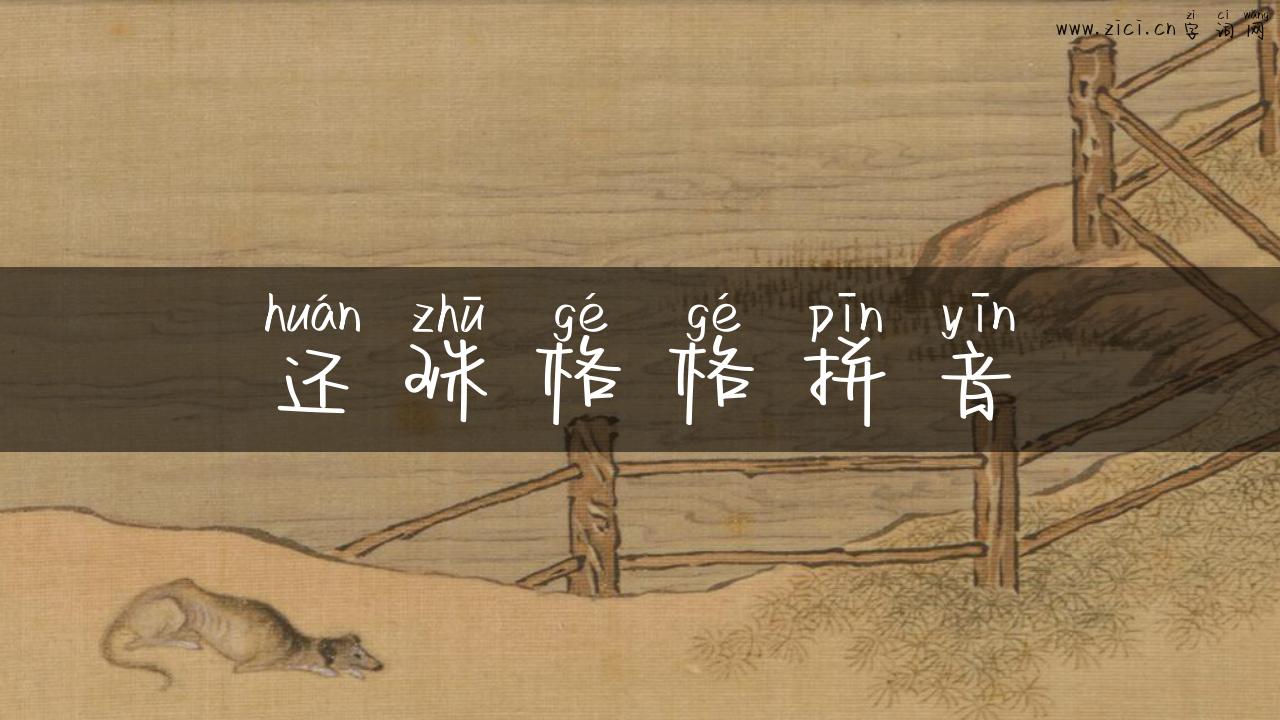 zi ci wang
www.zici.cn 字词网
huán zhū gé gé pīn yīn
还珠格格拼音